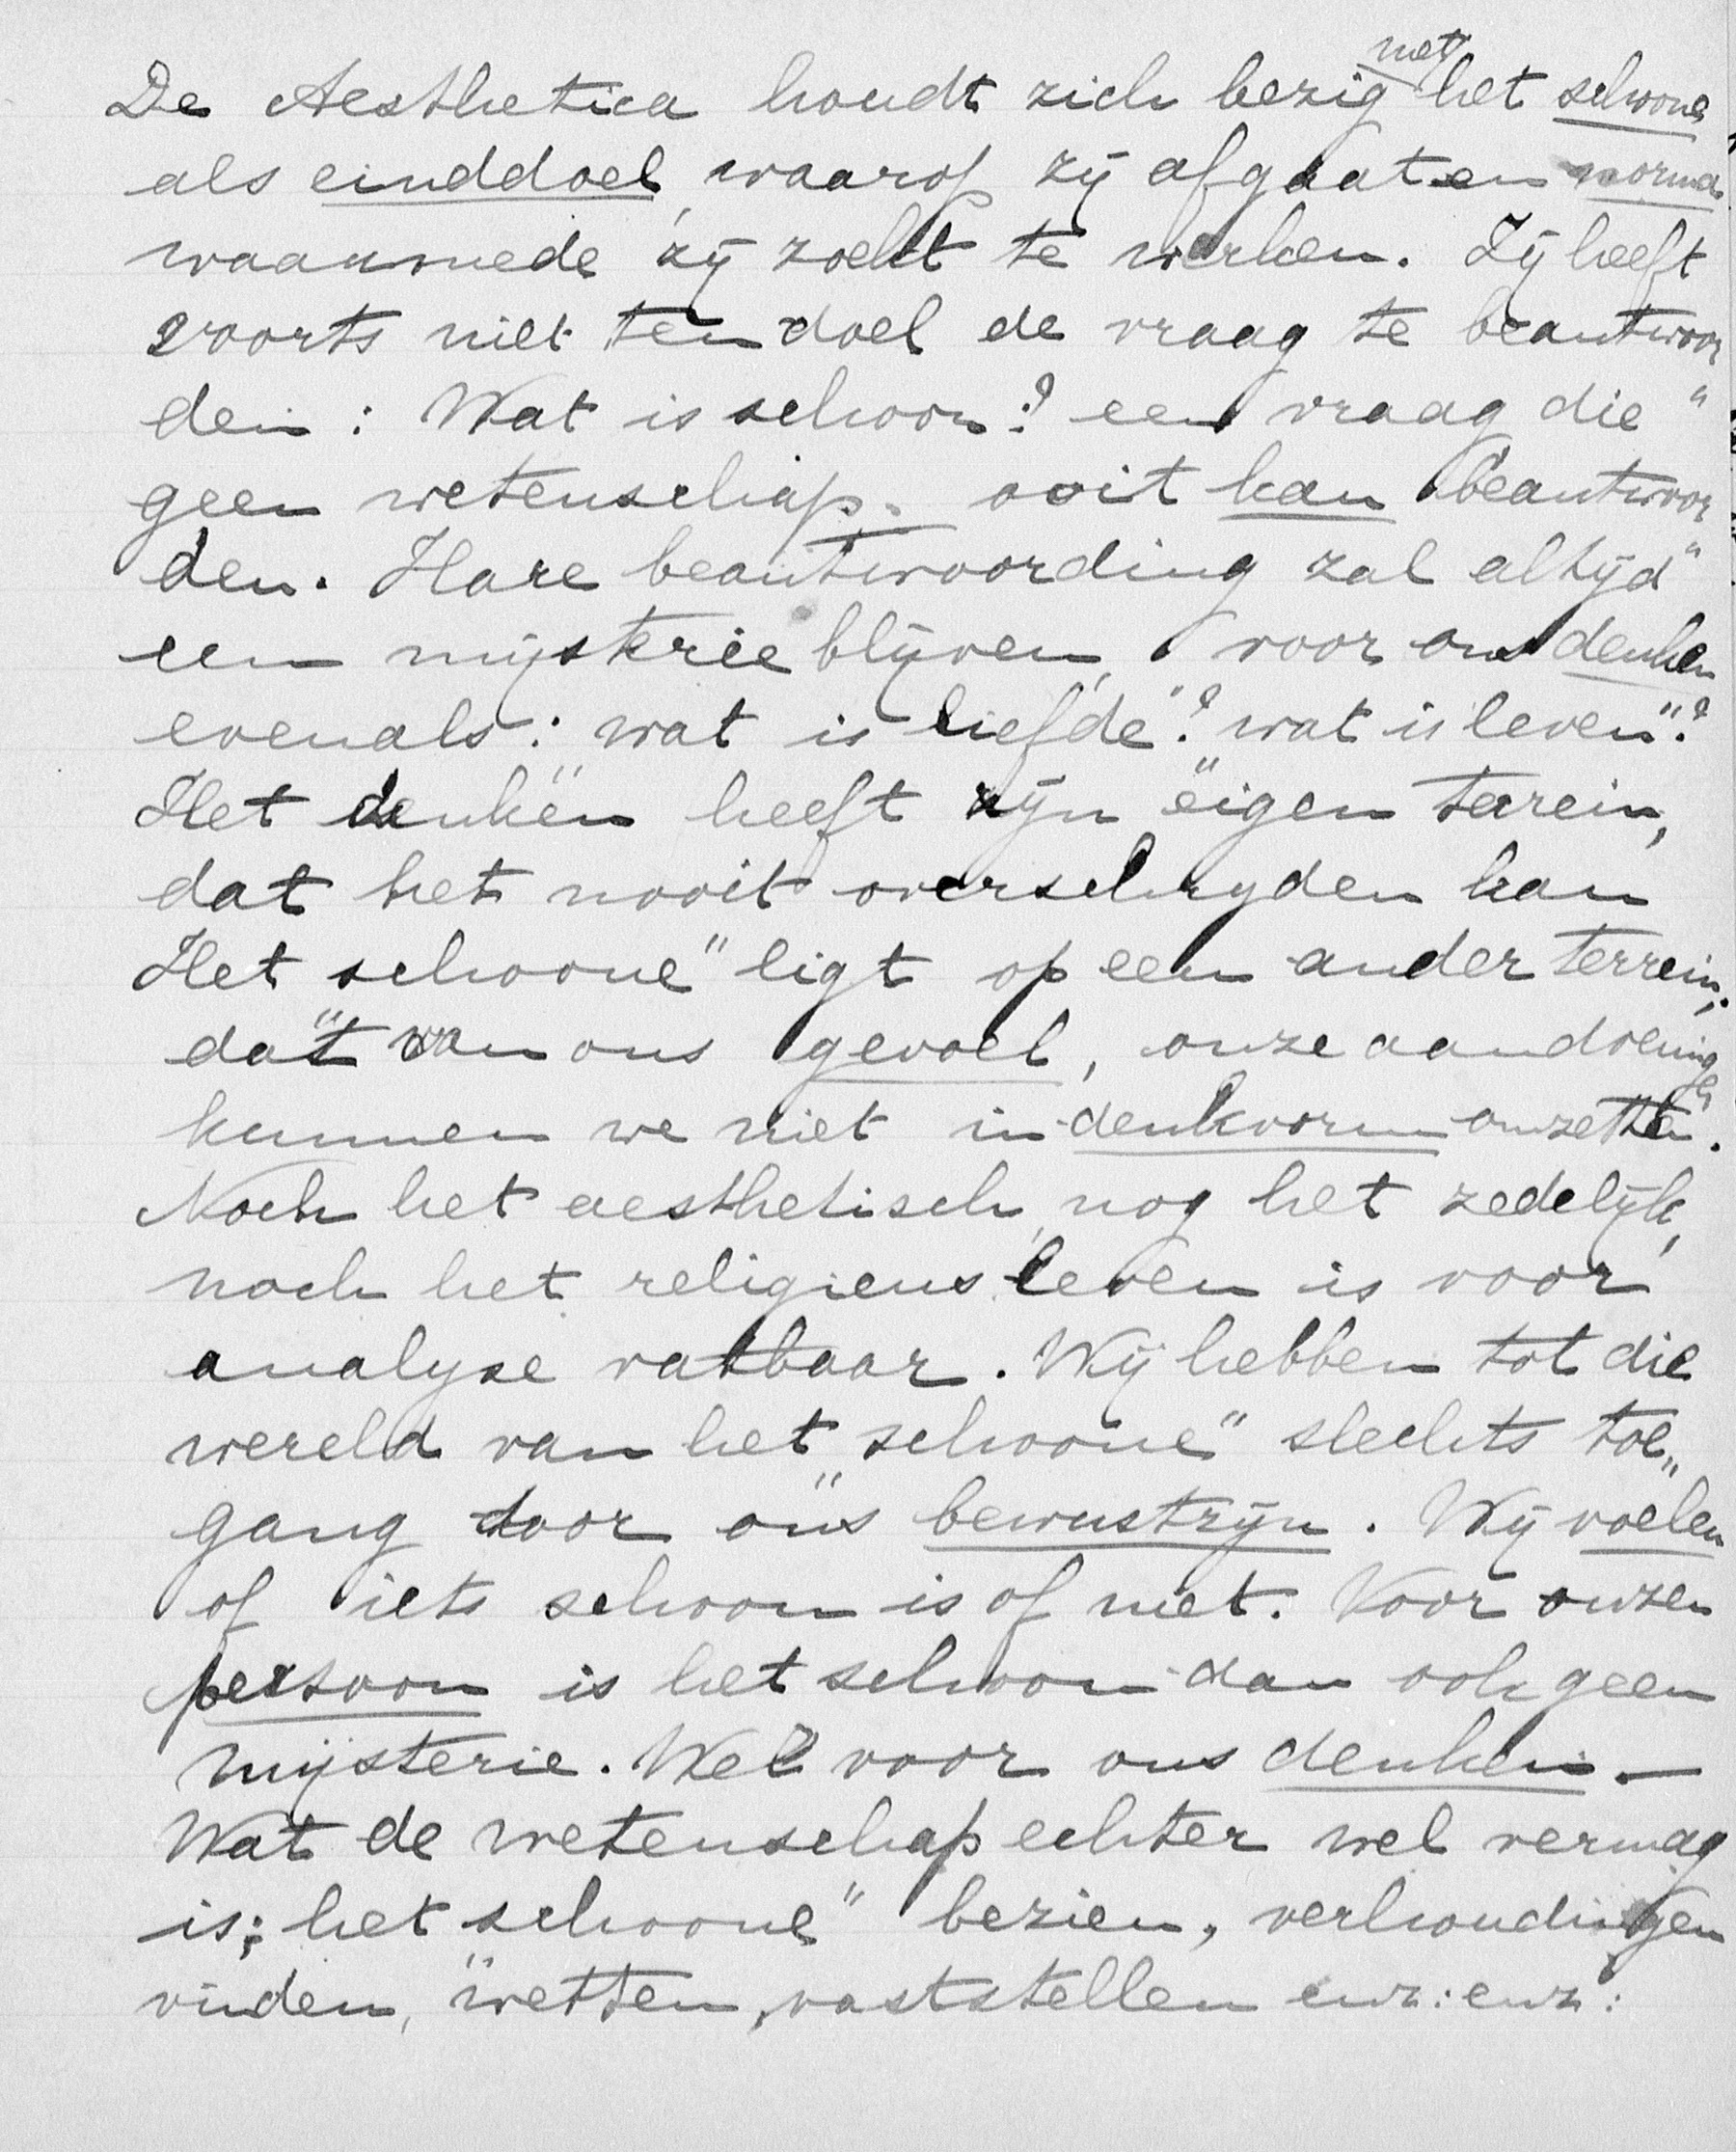 De Aesthetica houdt zich bezig met het schoone
als einddoel, waarop zij afgaat en norma
waarmede zij zoekt te werken. Zij heeft
voorts niet ten doel de vraag te beantwoor
den: Wat is schoon? een vraag die "
geen wetenschap. ooit kan beantwoor
den. Hare beantwoording zal altijd "
een mijsterie blijven, voor ons denken
evenals: wat is liefde"? wat is leven"?
Het "denken heeft zijn "eigen terrein,
dat het nooit overschrijden kan
Het schoone" ligt op een ander terrein;
dat" van ons gevoel, onze aandoeningen
kunnen we niet in denkvorm omzetten.
Noch het aesthetisch, nog het zedelijk,
noch het religieus leven is voor
analyse vatbaar. Wij hebben tot die
wereld van het "schoone" slechts toe"
gang door ons bewustzijn. Wij voelen
of iets schoon is of niet. Voor onzen
persoon is het schoon dan ook geen
mijsterie. Wel voor ons denken. —
Wat de wetenschap echter wel vermag
is: het schoone" bezien, verhoudingen
vinden, "wetten, vaststellen enz: enz: